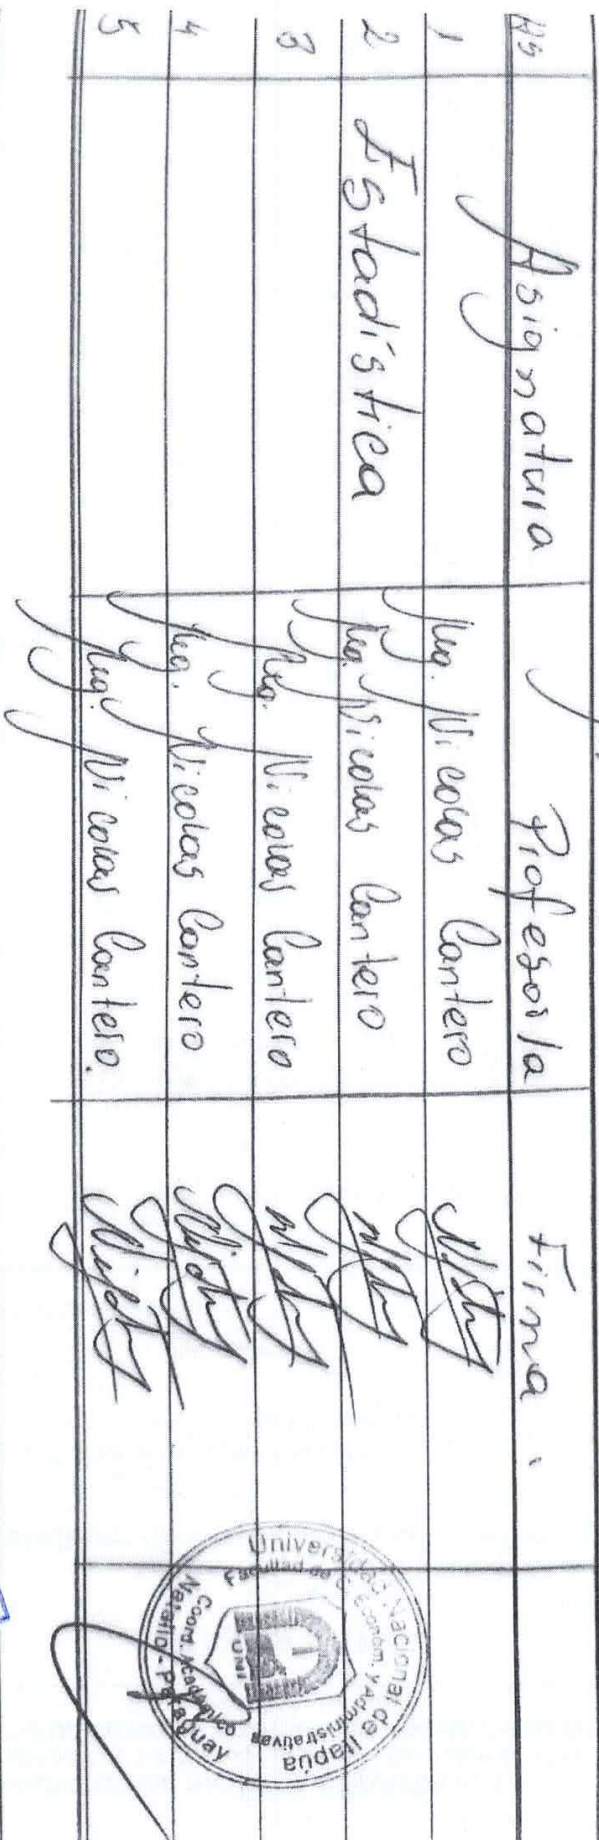 Hs Asignatura Profesor/a Firma
1 Nicolas Cantero
2 Estadística Nicolas Cantero
3 Nicolas Cantero
4 Nicolas Cantero
5 Nicolas Cantero.
Universidad Nacional de Itapúa
Facultad de C. Económ. y Administrativas
UNI
Coord. Académico
Natalio - Paraguay